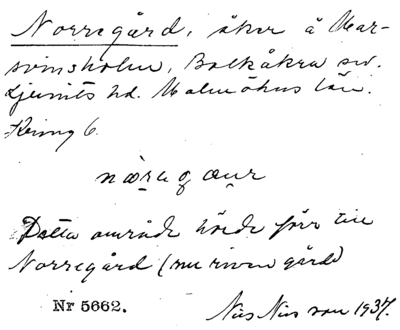 Norregård, åker å Mar-
svinsholm, Balkåkra sn.
Ljunits hd. Malmöhus län.
6.
Detta område hörde förr till
Norregård (nu riven gård)
Nr 5662.
Nils Nilsson 1937.